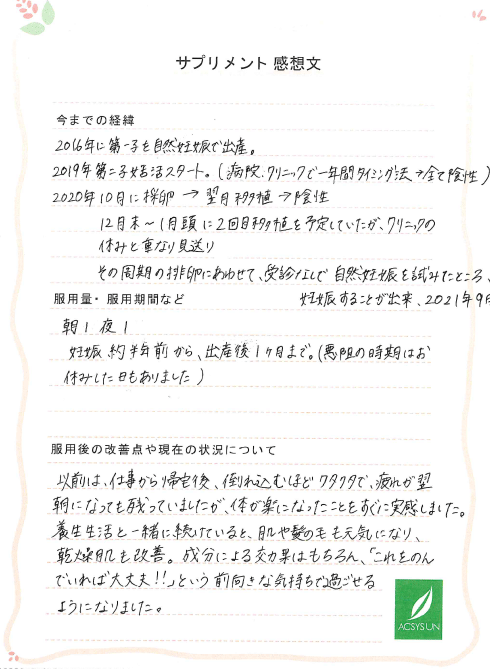 サプリメント 感想文
今までの経緯
2016年に第一子を自然妊娠で出産。
2019年第二子妊活スタート。(病院.クリニックで一年間タイミング法→全て陰性)
2020年10月に採卵 → 翌月移植→陰性
12月末〜1月頭に2回目移植を予定していたが、クリニックの
休みと重なり見送り
その周期の排卵にあわせて、受診なしで自然妊娠を試みたところ、
服用量・服用期間など
妊娠することが出来、2021年9月
朝1 夜1
妊娠約半年前から、出産後1ヶ月まで。(悪阻の時期はお
休みした日もありました)
服用後の改善点や現在の状況について
以前は、仕事から帰宅後、倒れ込むほどクタクタで、疲れが翌
朝になっても残っていましたが、体が楽になったことをすぐに実感しました。
養生生活と一緒に続けていると、肌や髪の毛も元気になり、
乾燥肌も改善。成分による効果はもちろん、「これをのん
でいれば大丈夫!!」という前向きな気持ちで過ごせる
ようになりました。
ACSYSUN